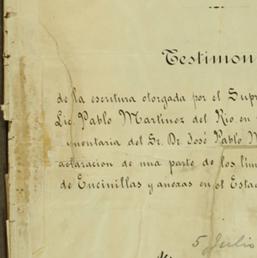 Testimon
de la escritura otorgada por el Supr
Lic. Pablo Martinez del Rio en
mentaria del Sr. Dr. José Pablo M
aclaracion de una parte de los lim
de Encinillas y anexas en el Estad
5 Julio